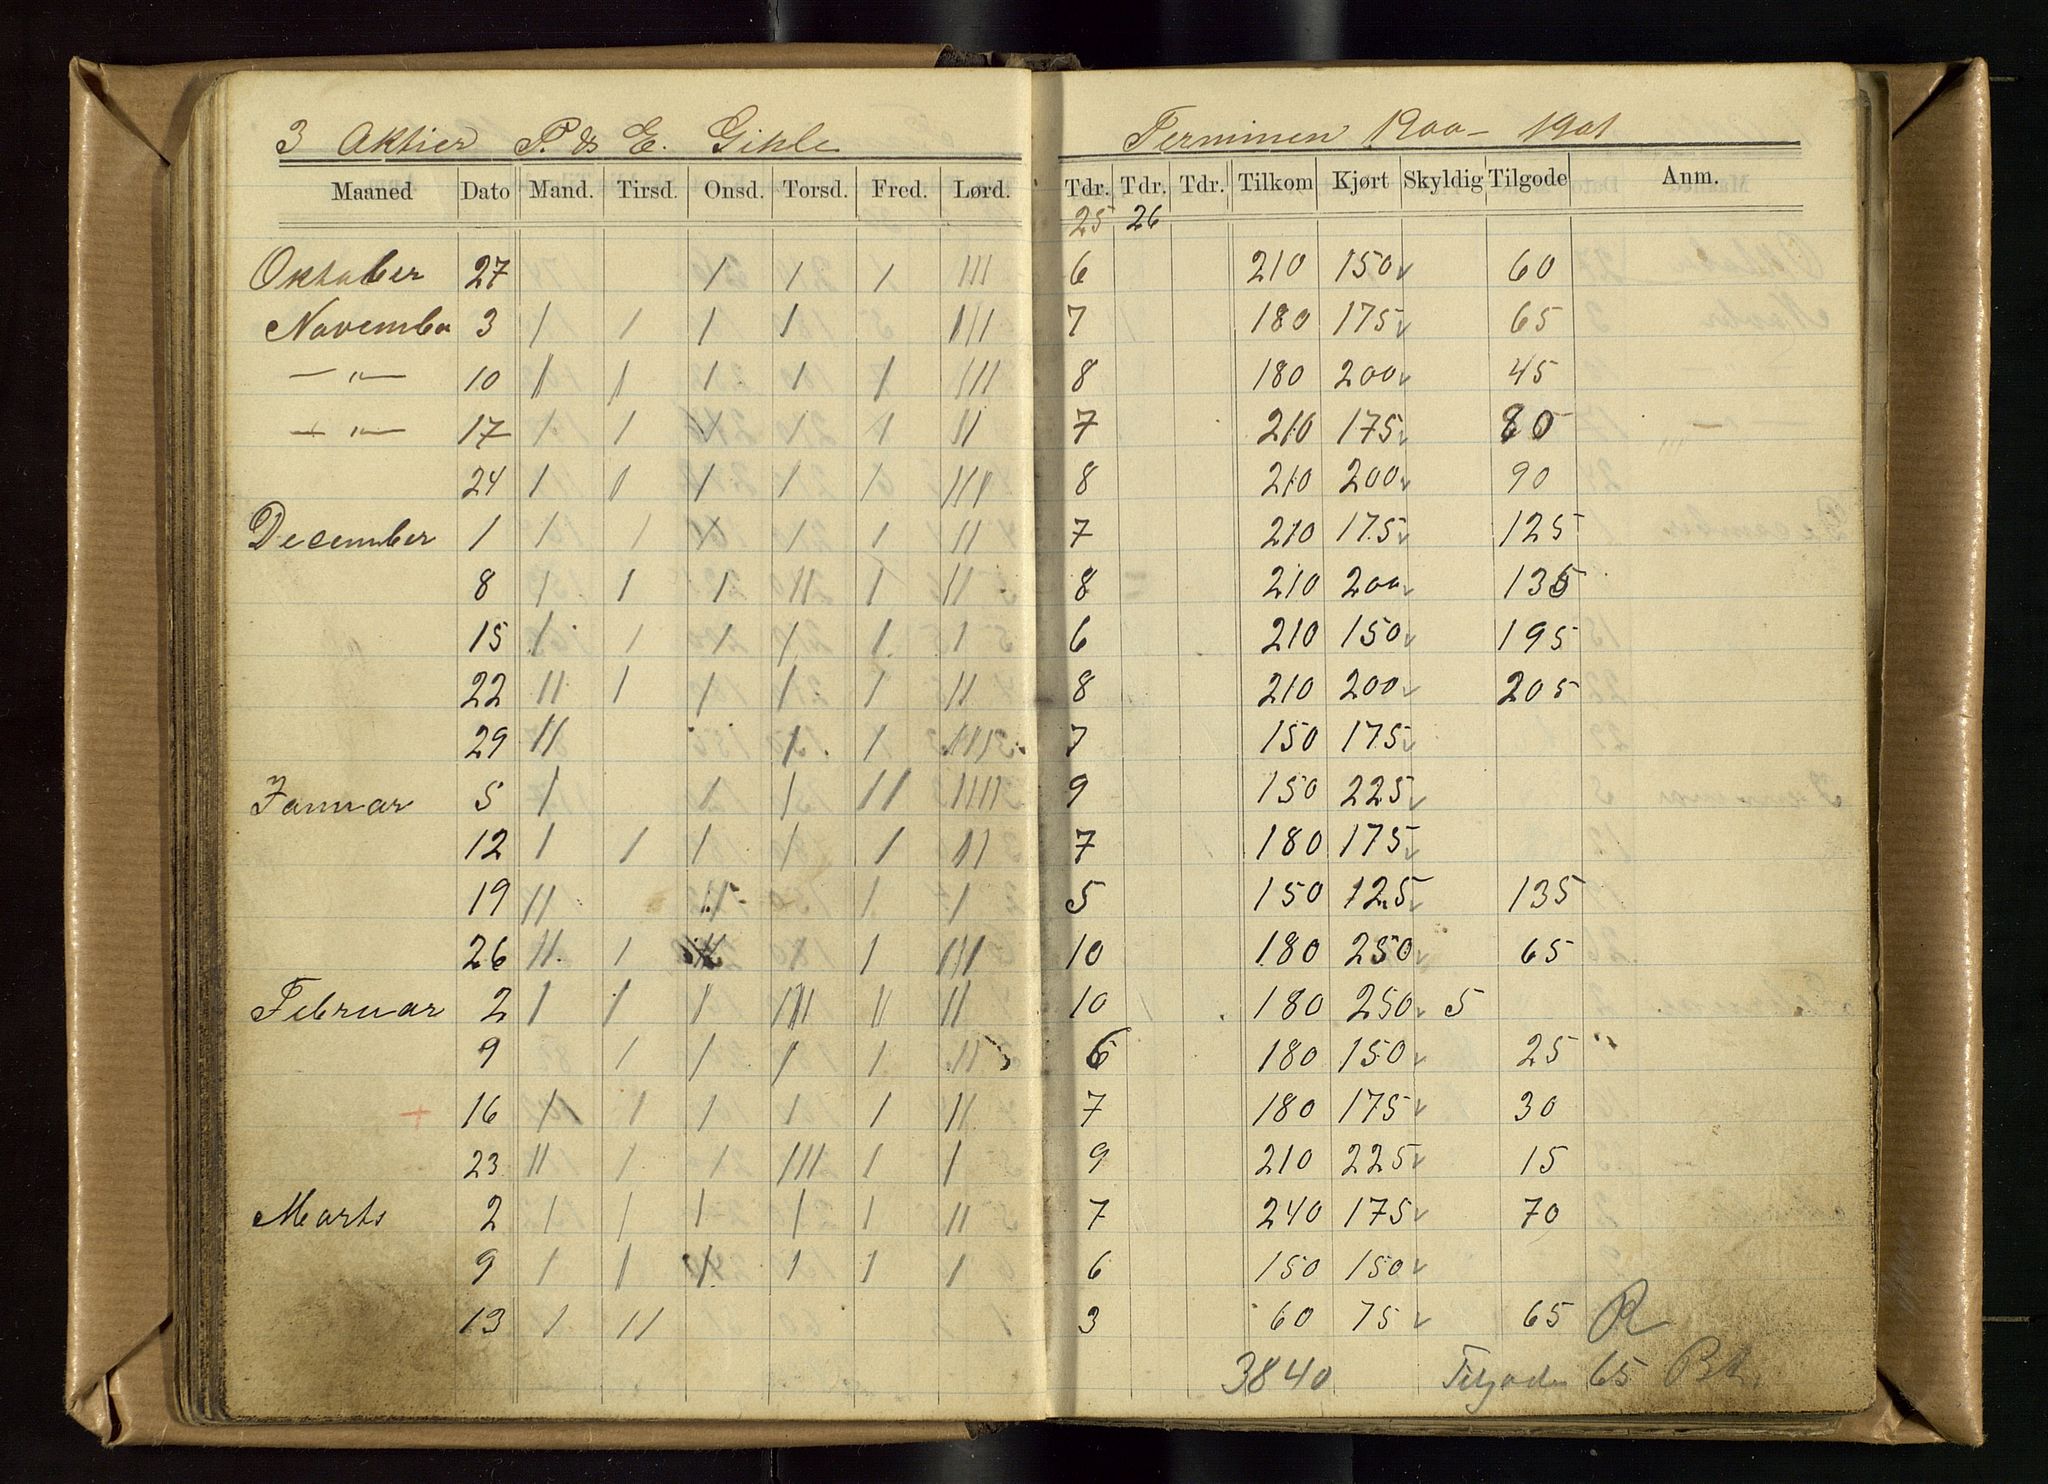 3 Aktier P. & E. Gihle Terminen 1900 - 1901
Maaned Dato Mand. Tirsd. Onsd. Torsd. Fred. Lørd. Tdr. Tdr. Tdr. Tilkom Kjørt Skyldig Tilgode Anm.
25 26
Oktober 27 I I I III 6 210 150 60
November 3 I I I I III 7 180 175 65
— " — 10 I I I I I III 8 180 200 45
— " — 17 I I I I I II 7 210 175 80
24 I I I I I III 8 210 200 90
December 1 I I I I I II 7 210 175 125
8 I I I II I II 8 210 200 135
15 I I I I I I 6 210 150 195
22 II I I I I II 8 210 200 205
29 II I I 7 150 175
Januar 5 I I I II IIII 9 150 225
12 I I I I I II 7 180 175
19 II I I 5 150 125 135
26 II I I I III 10 180 250 65
Februar 2 I I I III II II 10 180 250 5
9 I I I I II 6 180 150 25
16 I I I I I II 7 180 175 30
23 II I I III I I 9 210 225 15
Marts 2 I I I I I II 7 240 175 70
9 I I I I I I 6 150 150
13 I II 3 60 75 65
3840 Tilgode 65